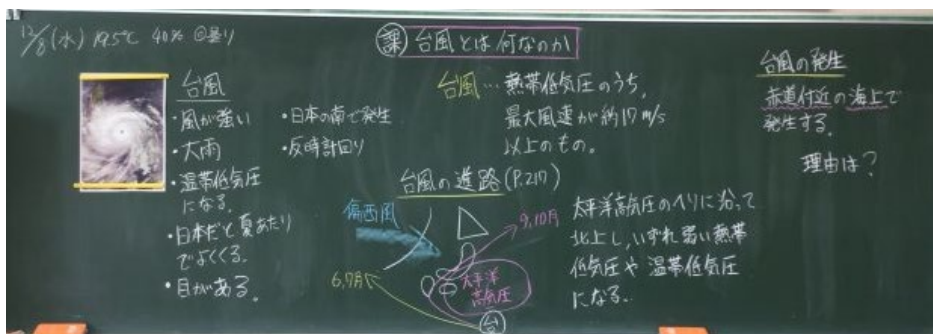 12/8(水) 19.5℃ 40% ◎曇り
課 台風とは何なのか
台風
・風が強い
・大雨
・温帯低気圧
になる。
・日本だと夏あたり
でよくくる。
・目がある。
・日本の南で発生
・反時計回り
台風…熱帯低気圧のうち、
最大風速が約17m/s
以上のもの。
台風の進路(P.217)
偏西風
9,10月
6,7月
太平洋
高気圧
台
太平洋高気圧のへりに沿って
北上し、いずれ弱い熱帯
低気圧や温帯低気圧
になる。
台風の発生
赤道付近の海上で
発生する。
理由は？